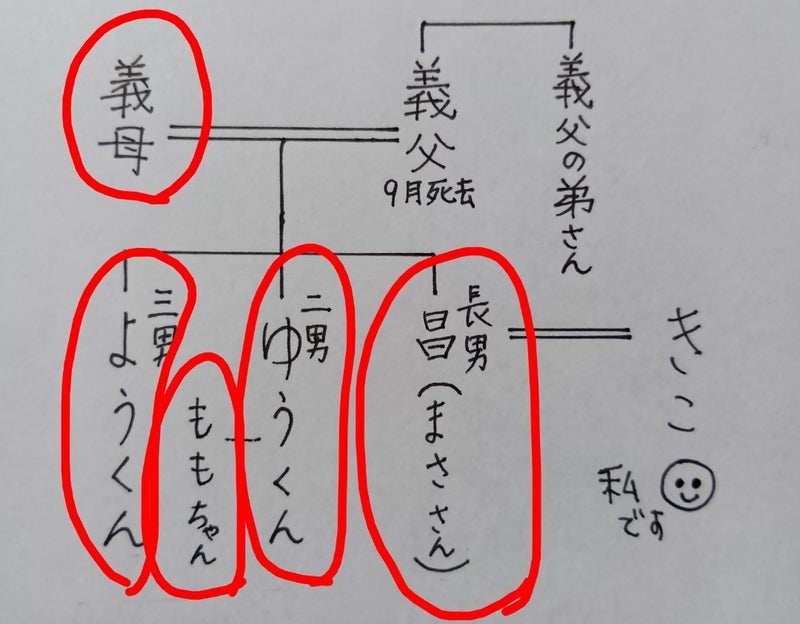 義母
義父
9月死去
義父の弟さん
長男
昌(まささん)
二男
ゆうくん
ももちゃん
三男
ようくん
きこ
私です